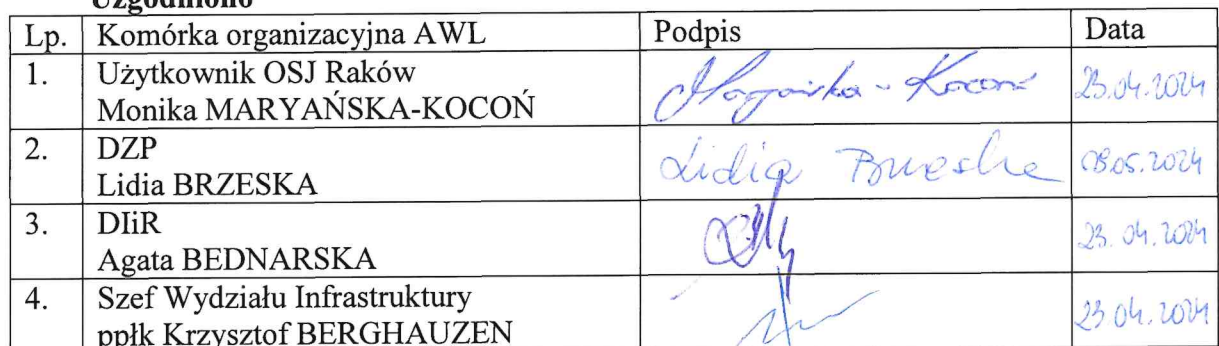 Uzgodniono
Lp. Komórka organizacyjna AWL Podpis Data
1. Użytkownik OSJ Raków
Monika MARYAŃSKA-KOCOŃ Maryańska-Kocoń 23.04.2024
2. DZP
Lidia BRZESKA Lidia Brzeska 08.05.2024
3. DIiR
Agata BEDNARSKA 23.04.2024
4. Szef Wydziału Infrastruktury
ppłk Krzysztof BERGHAUZEN 23.04.2024